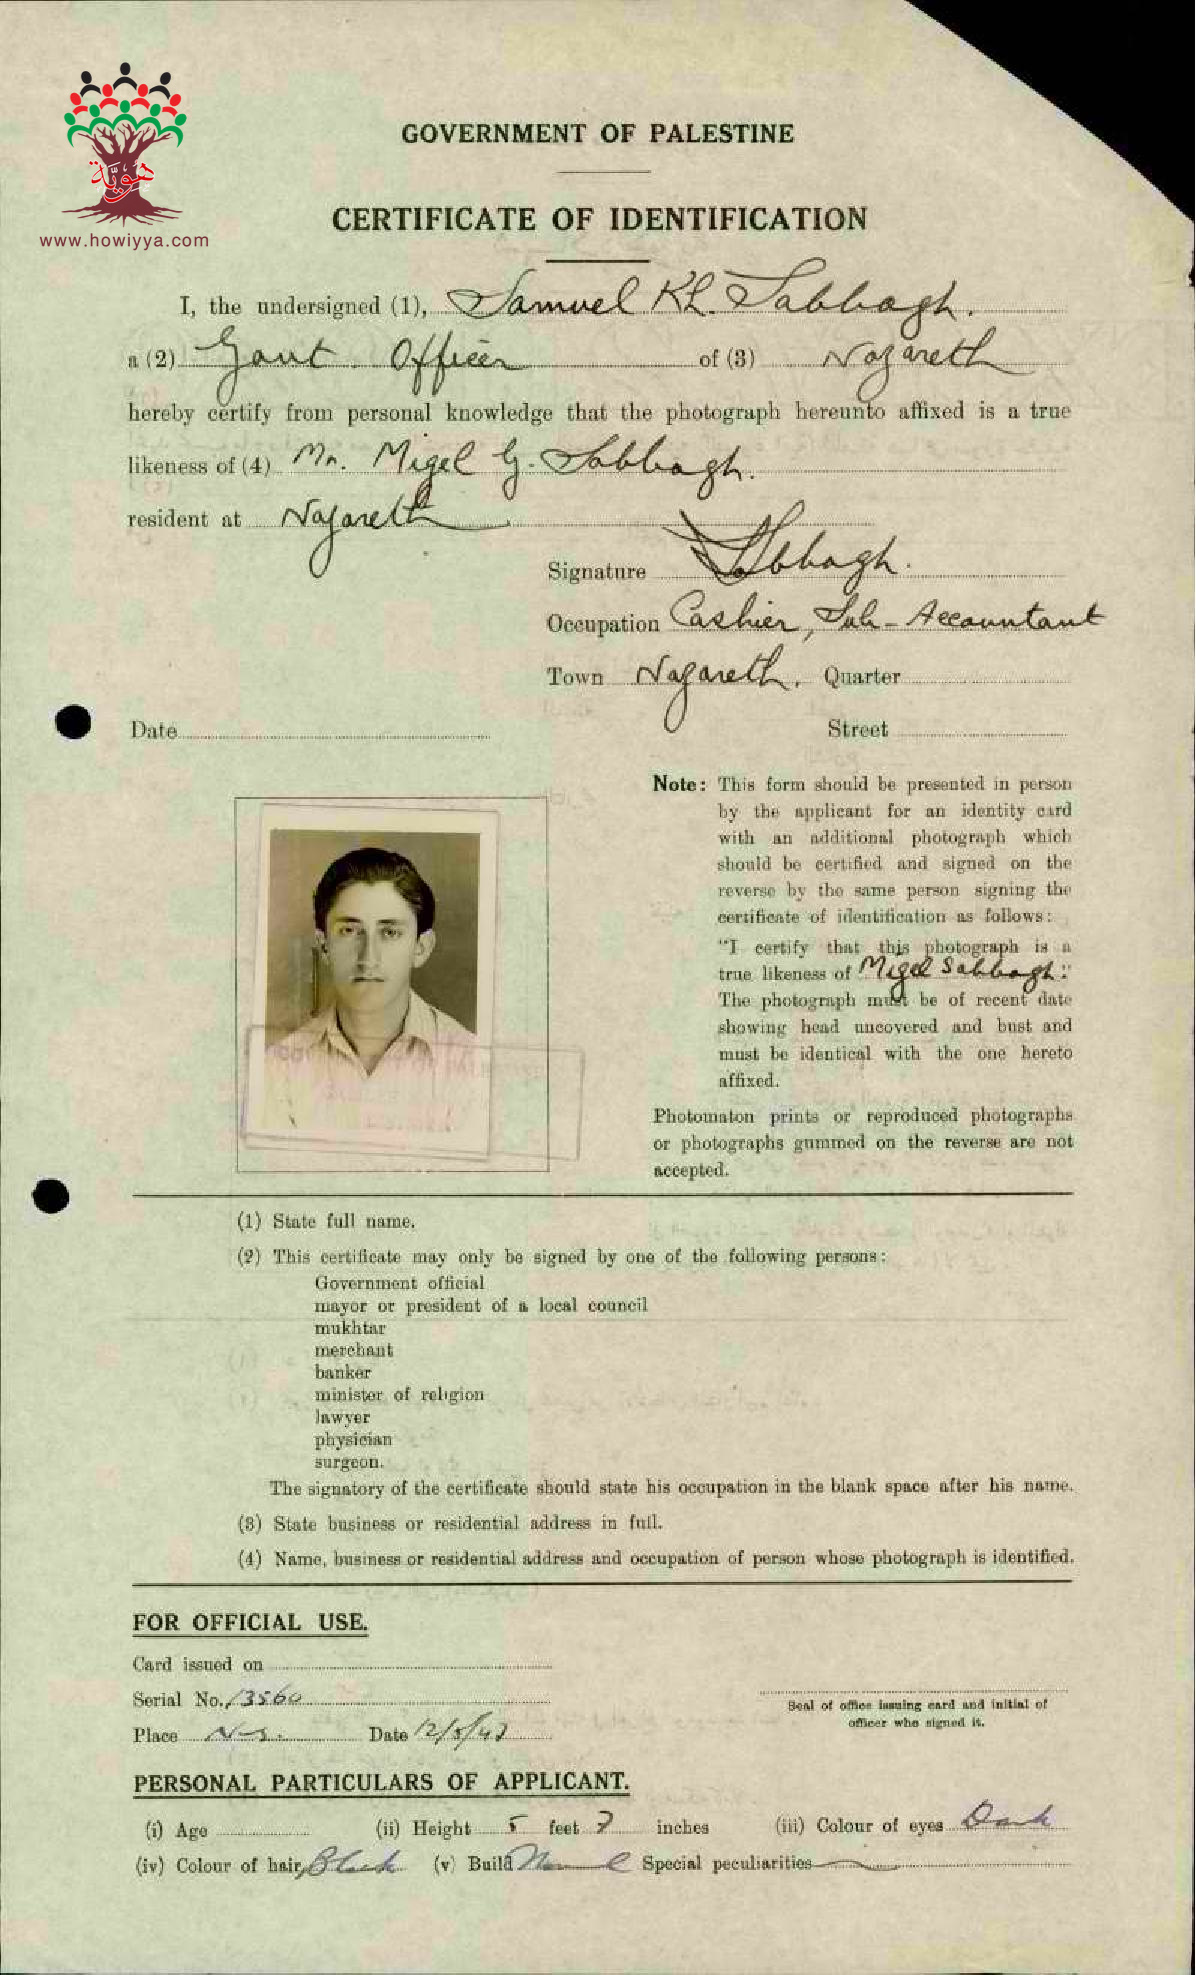 هويّة
www.howiyya.com
GOVERNMENT OF PALESTINE
CERTIFICATE OF IDENTIFICATION
I, the undersigned (1), Samuel Kh. Sabbagh.
a (2) Govt. Officer of (3) Nazareth
hereby certify from personal knowledge that the photograph hereunto affixed is a true
likeness of (4) Mr. Migel G. Sabbagh.
resident at Nazareth
Signature Sabbagh.
Occupation Cashier, Sub-Accountant
Town Nazareth. Quarter
Date
Street
Note: This form should be presented in person
by the applicant for an identity card
with an additional photograph which
should be certified and signed on the
reverse by the same person signing the
certificate of identification as follows:
"I certify that this photograph is a
true likeness of Migel Sabbagh."
The photograph must be of recent date
showing head uncovered and bust and
must be identical with the one hereto
affixed.
Photomaton prints or reproduced photographs
or photographs gummed on the reverse are not
accepted.
(1) State full name.
(2) This certificate may only be signed by one of the following persons:
Government official
mayor or president of a local council
mukhtar
merchant
banker
minister of religion
lawyer
physician
surgeon.
The signatory of the certificate should state his occupation in the blank space after his name.
(3) State business or residential address in full.
(4) Name, business or residential address and occupation of person whose photograph is identified.
FOR OFFICIAL USE.
Card issued on
Serial No. 13560
Seal of office issuing card and initial of
officer who signed it.
Place Date
PERSONAL PARTICULARS OF APPLICANT.
(i) Age (ii) Height 5 feet 7 inches (iii) Colour of eyes Dark
(iv) Colour of hair Black (v) Build Special peculiarities